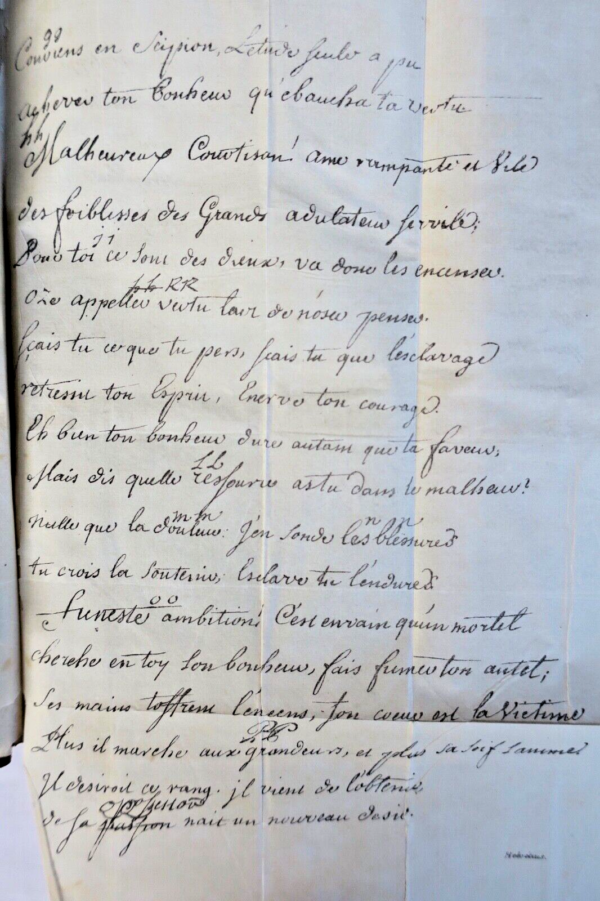 gg
Conviens en Scipion, L'etude seule a pu
achever ton bonheur qu'ebaucha ta vertu
hh
Malheureux Courtisan! ame rampante et Vile
des foiblesses des Grands adulateur servile;
ii
Pour toi ce sont des dieux, va donc les encenser.
Oze appeller vertu l'art de n'oser penser.
kk RR
sçais tu ce que tu pers, sçais tu que l'esclavage
retressit ton Esprit, Enerve ton courage.
Eh bien ton bonheur dure autant que ta faveur,
LL
Mais dis quelle ressource as tu dans le malheur?
mm nn
Nulle que la douleur: j'en sonde les blessures
tu crois la soutenir, Esclave tu l'endures
oo
funeste ambition! C'est en vain qu'un mortel
cherche en toy son bonheur, fais fumer ton autel;
Ses mains t'offrent l'encens, ton coeur est la Victime
PP
Plus il marche aux grandeurs, et plus sa soif s'anime
Il desiroit ce rang. jl vient de l'obtenir,
de sa passion nait un nouveau desir.